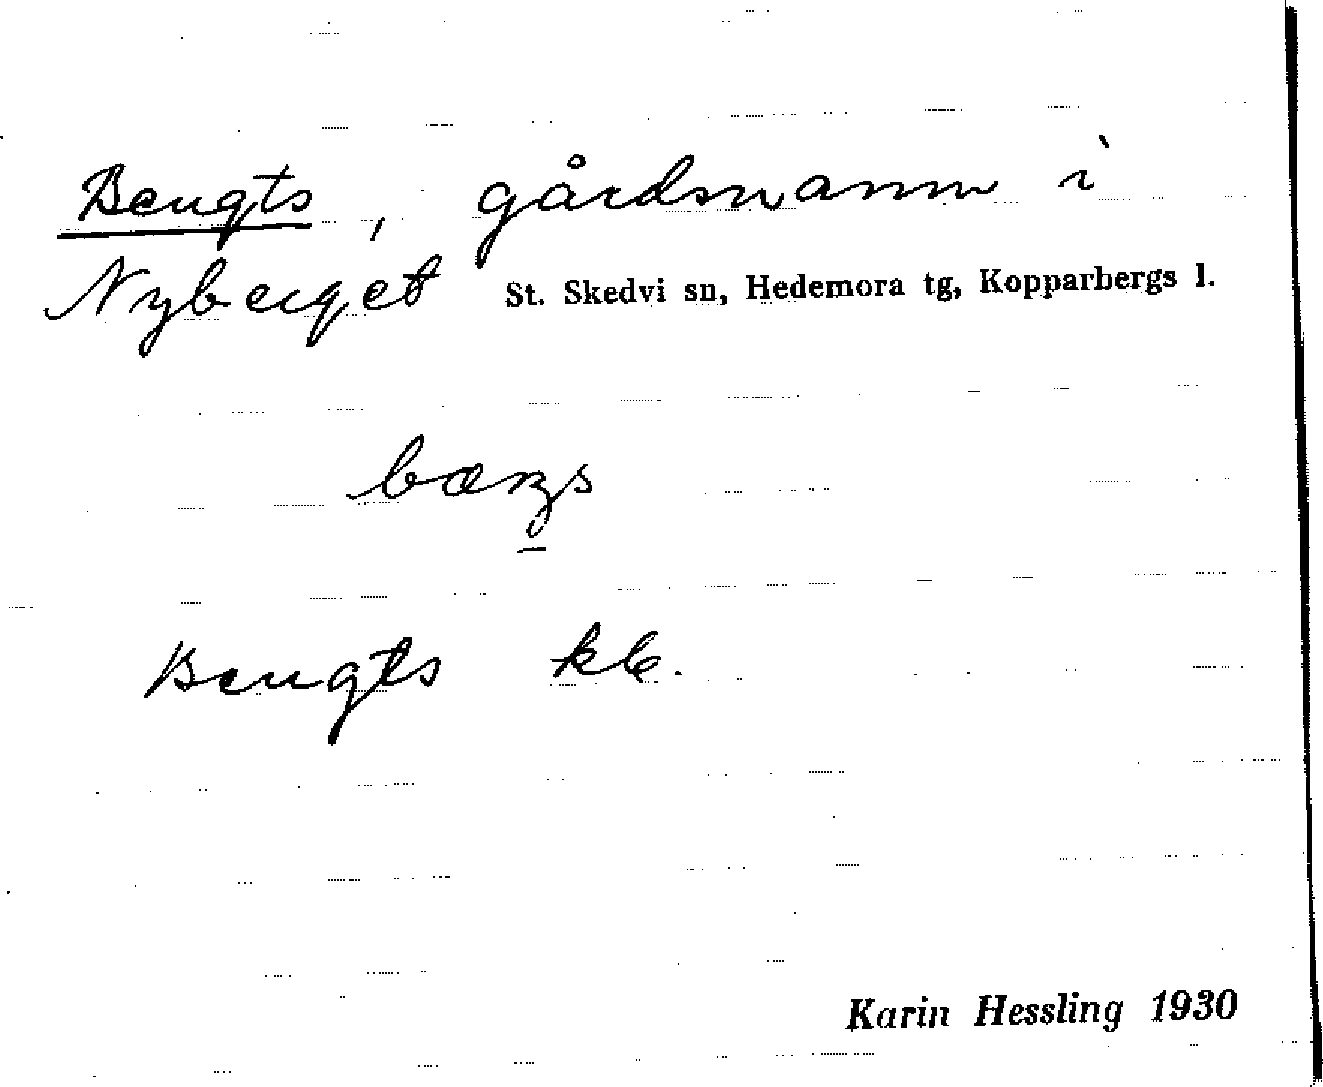 Bengts, gårdsnamn i
Nyberget St. Skedvi sn, Hedemora tg, Kopparbergs l.
Bengts kb.
Karin Hessling 1930